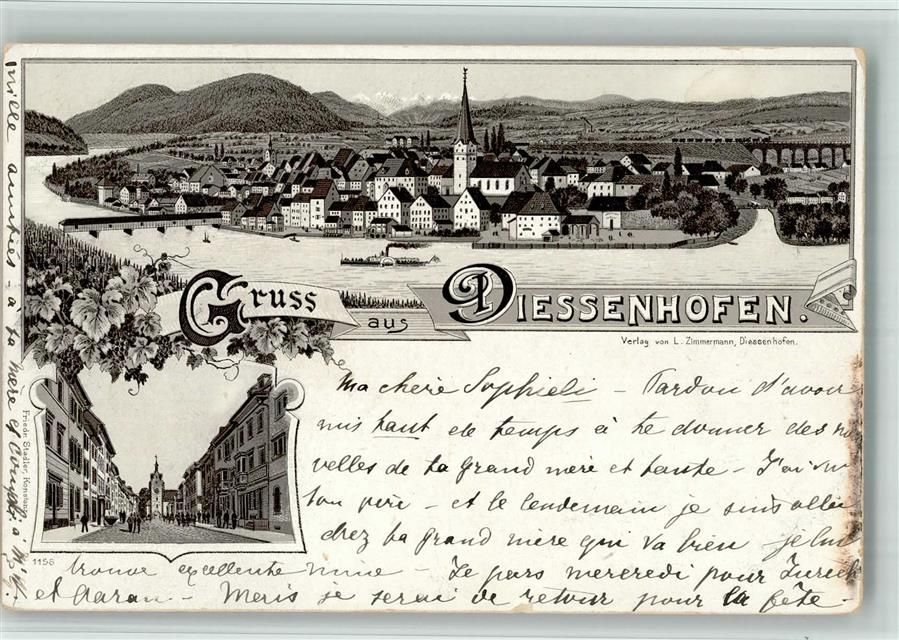 Gruss aus Diessenhofen.
Verlag von L. Zimmermann, Diessenhofen.
Ma chère Sophieli – Pardon d'avoir
mis tant de temps à te donner des nou
velles de ta grand mère et tante – J'ai vu
ton père – et le lendemain je suis allée
chez ta grand mère qui va bien – je lui
trouve excellente mine – Je pars mercredi pour Zurich
et Aarau – Mais je serai de retour pour la fête –
mille amitiés à ta mère et
Friedr. Stadler, Konstanz
1156